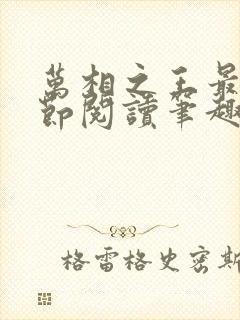 萬相之王最
節閱讀筆趣
格雷格史密斯